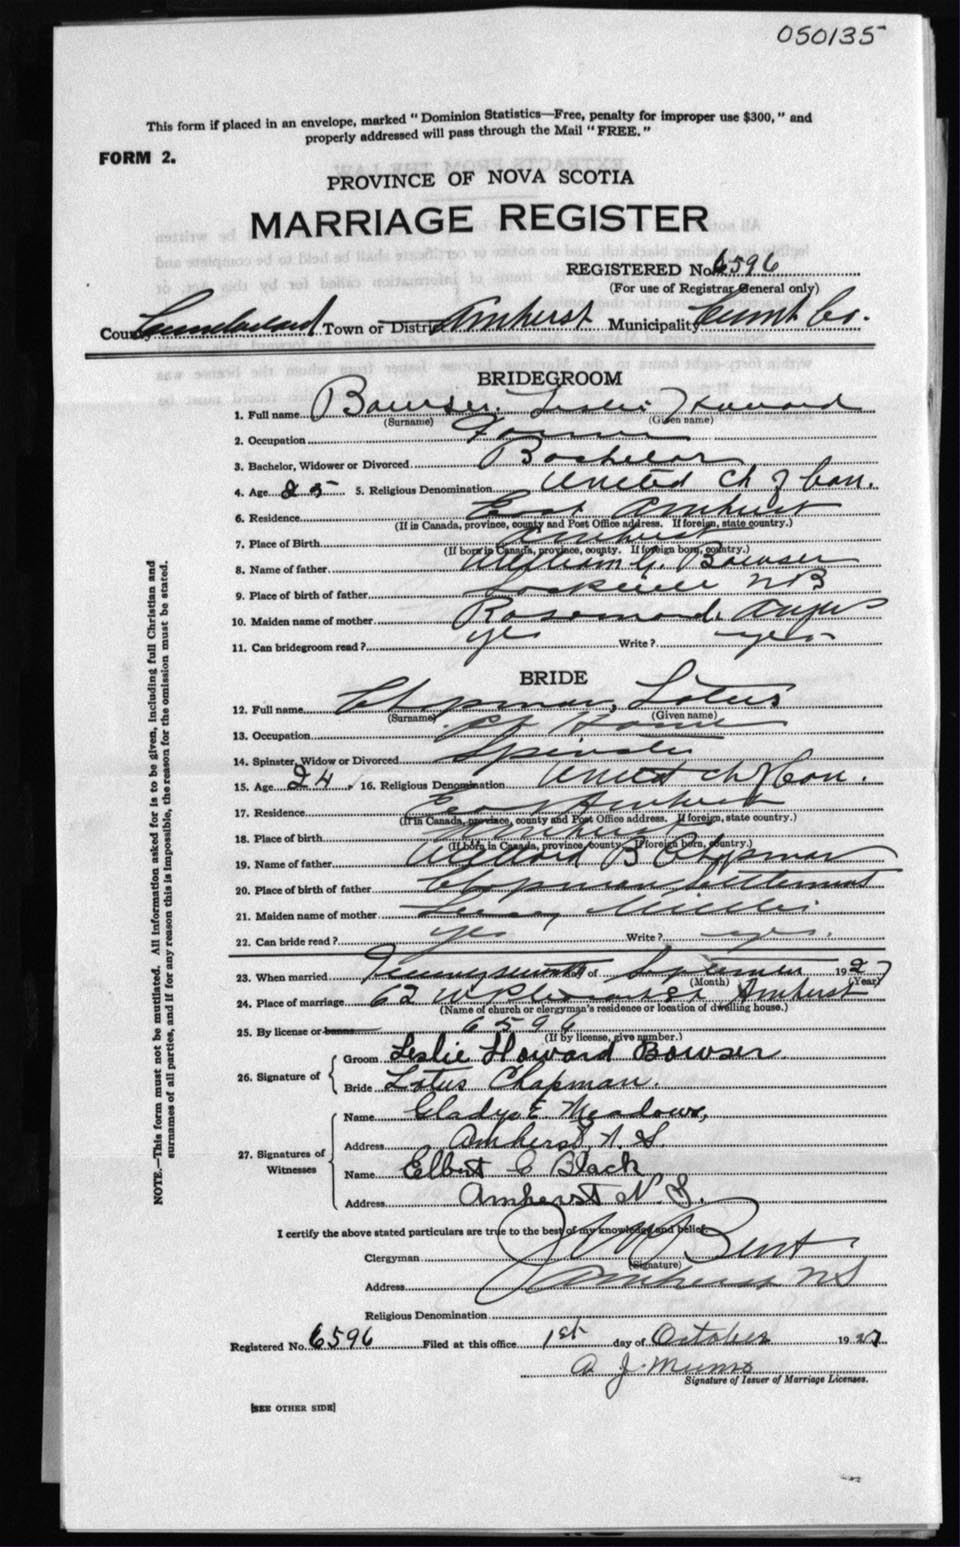 050135
This form if placed in an envelope, marked "Dominion Statistics—Free, penalty for improper use $300," and
properly addressed will pass through the Mail "FREE."
FORM 2.
PROVINCE OF NOVA SCOTIA
MARRIAGE REGISTER
REGISTERED No. 6596
(For use of Registrar General only)
County Cumberland Town or District Amherst Municipality Cumb Co.
BRIDEGROOM
1. Full name Bowser, Leslie Howard
(Surname) (Given name)
2. Occupation Farmer
3. Bachelor, Widower or Divorced Bachelor
4. Age 25 5. Religious Denomination United Ch of Can.
6. Residence East Amherst
(If in Canada, province, county and Post Office address. If foreign, state country.)
7. Place of Birth Amherst
(If born in Canada, province, county. If foreign born, country.)
8. Name of father William G. Bowser
9. Place of birth of father NB
10. Maiden name of mother
11. Can bridegroom read? yes Write? yes
BRIDE
12. Full name Chapman, Lotus
(Surname) (Given name)
13. Occupation At Home
14. Spinster, Widow or Divorced Spinster
15. Age 24 16. Religious Denomination United Ch of Can.
17. Residence East Amherst
(If in Canada, province, county and Post Office address. If foreign, state country.)
18. Place of birth Amherst
(If born in Canada, province, county. If foreign born, country.)
19. Name of father B Chapman
20. Place of birth of father Chapman Settlement
21. Maiden name of mother
22. Can bride read? yes Write? yes.
23. When married day of September 1927
(Month) (Year)
24. Place of marriage 62 W Pleasant St Amherst
(Name of church or clergyman's residence or location of dwelling house.)
25. By license or banns 6596
(If by license, give number.)
26. Signature of
Groom Leslie Howard Bowser
Bride Lotus Chapman.
27. Signatures of Witnesses
Name Gladys E. Meadows,
Address Amherst N. S.
Name Elbert C Black
Address Amherst N. S.
I certify the above stated particulars are true to the best of my knowledge and belief.
Clergyman Bent
(Signature)
Address Amherst NS
Religious Denomination
Registered No. 6596 Filed at this office 1st day of October 1927
A J. Munro
Signature of Issuer of Marriage Licenses.
[SEE OTHER SIDE]
NOTE.—This form must not be mutilated. All information asked for is to be given, including full Christian and
surnames of all parties, and if for any reason this is impossible, the reason for the omission must be stated.